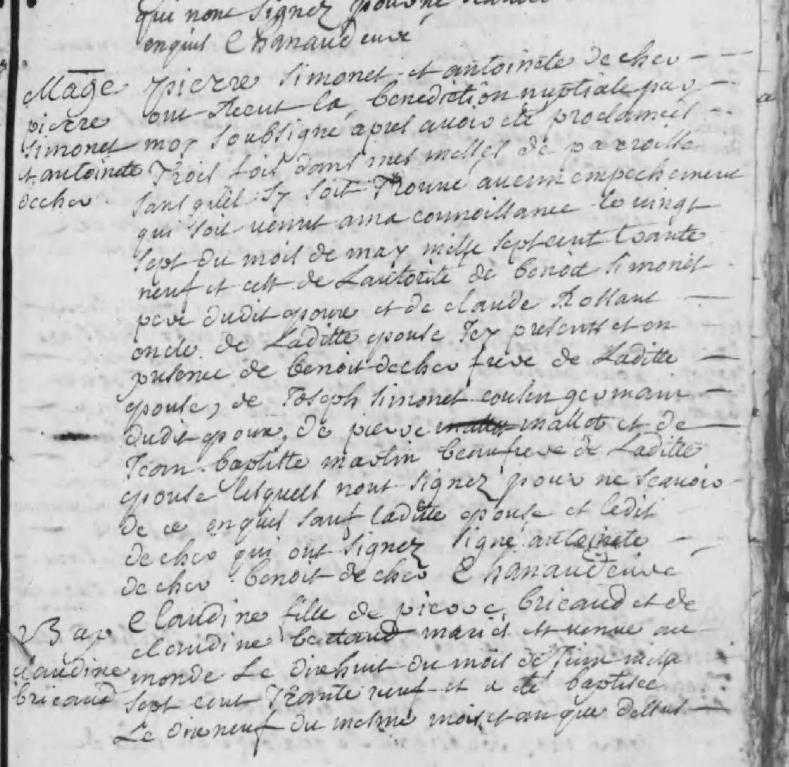 qui nont signez pour ne scavoir
enquis Chanaud curé
Mage pierre simonet et antoinete decher
pierre ont Receut la benediction nuptiale par
simonet moy soubsigné apres avoir été proclamés
et antoinete Trois fois dans mes messes de parroisse
decher sans quil sy soit Trouvé aucun empechement
qui soit venut a ma connoissance le vingt
sept du mois de may mille sept cent trante
neuf et cest de Lautorité de benoit simonet
pere dudit epoux et de claude Rollant
oncle de Laditte epouse Icy presents et en
presence de benoit decher frere de Laditte
epouse, de Joseph simonet cousin germain
dudit epoux, de pierre mallot et de
Jean baptiste martin beaufrere de Laditte
epouse lesquels nont signez pour ne scavoir
de ce enquis sauf laditte epouse et ledit
decher qui ont signez signé antoinete
decher benoit decher Chanaud curé
Bap Claudine fille de pierre bricaud et de
claudine claudine mariés est venue au
bricaud monde Le dixhuit du mois de Juin mil
sept cent Trante neuf et a été baptisée
Le dixneuf du mesme mois et an que dessus